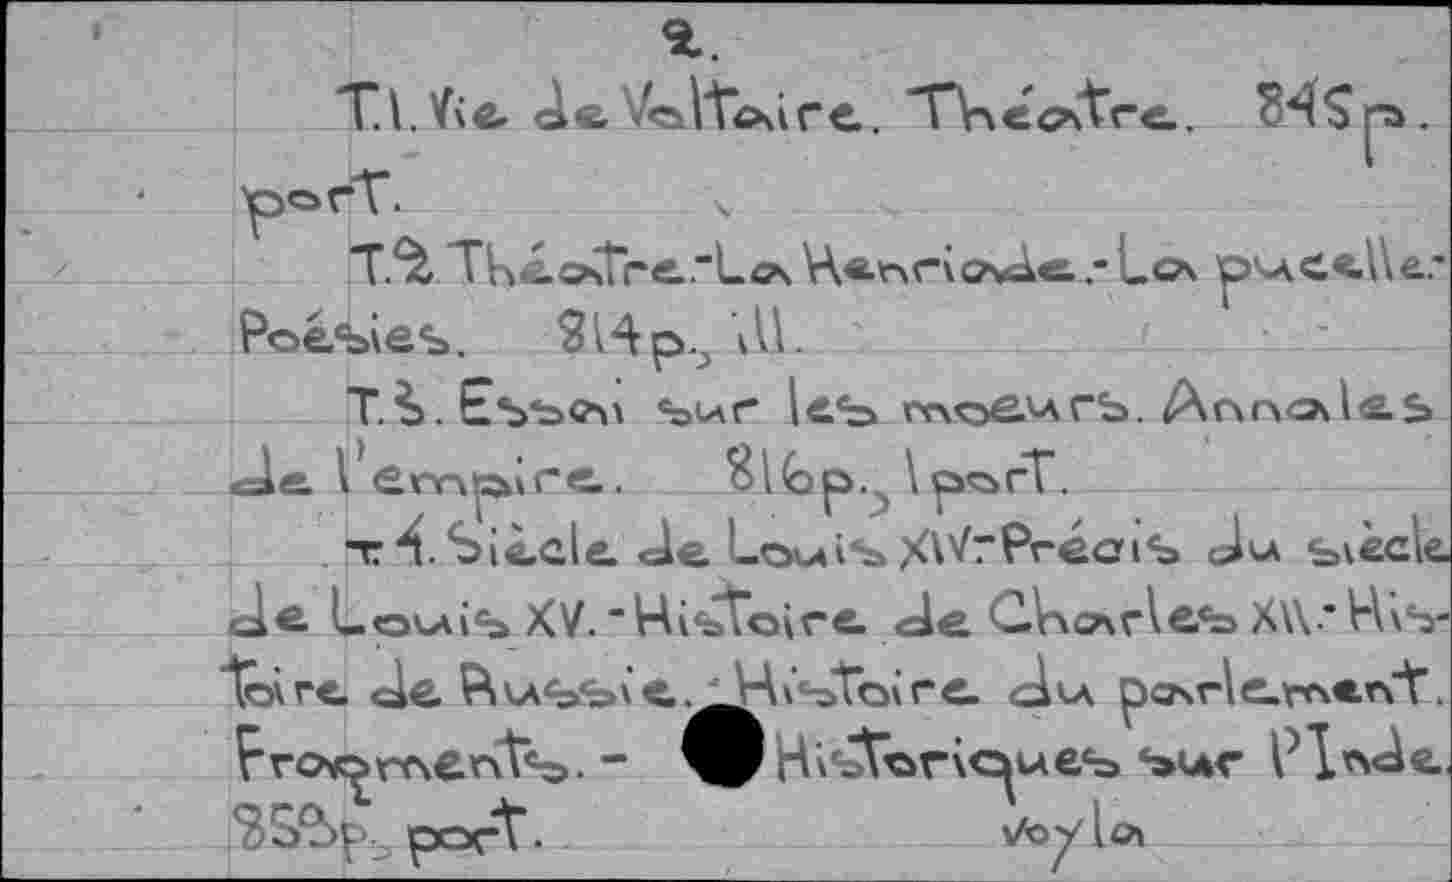 2.
T.1. Vie de Voltaire. Théatre. 845 p.
port.
T.2. Théatre.-La Henriade.-La pucelle.-
Poésies. 814 p., ill.
T.3. Essai sur les moeurs. Annales
de l'empire. 816p., 1 port.
T.4. Siècle de Louis XIV.-Précis du siècle
de Louis XV.-Histoire de Charles XII.-His-
toire de Russie.-Histoire du parlement.
Fragments.- Historiques sur l'Inde.
port.
Voy la